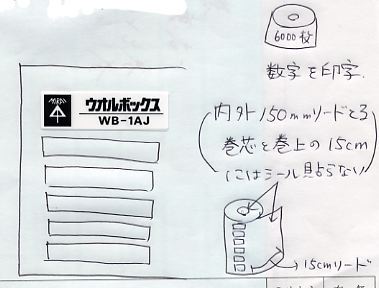 6000枚
数字を印字.
ウオルボックス
WB-1AJ
内外150mmリードとる
巻芯と巻上の15cm
にはシール貼らない
→15cmリード